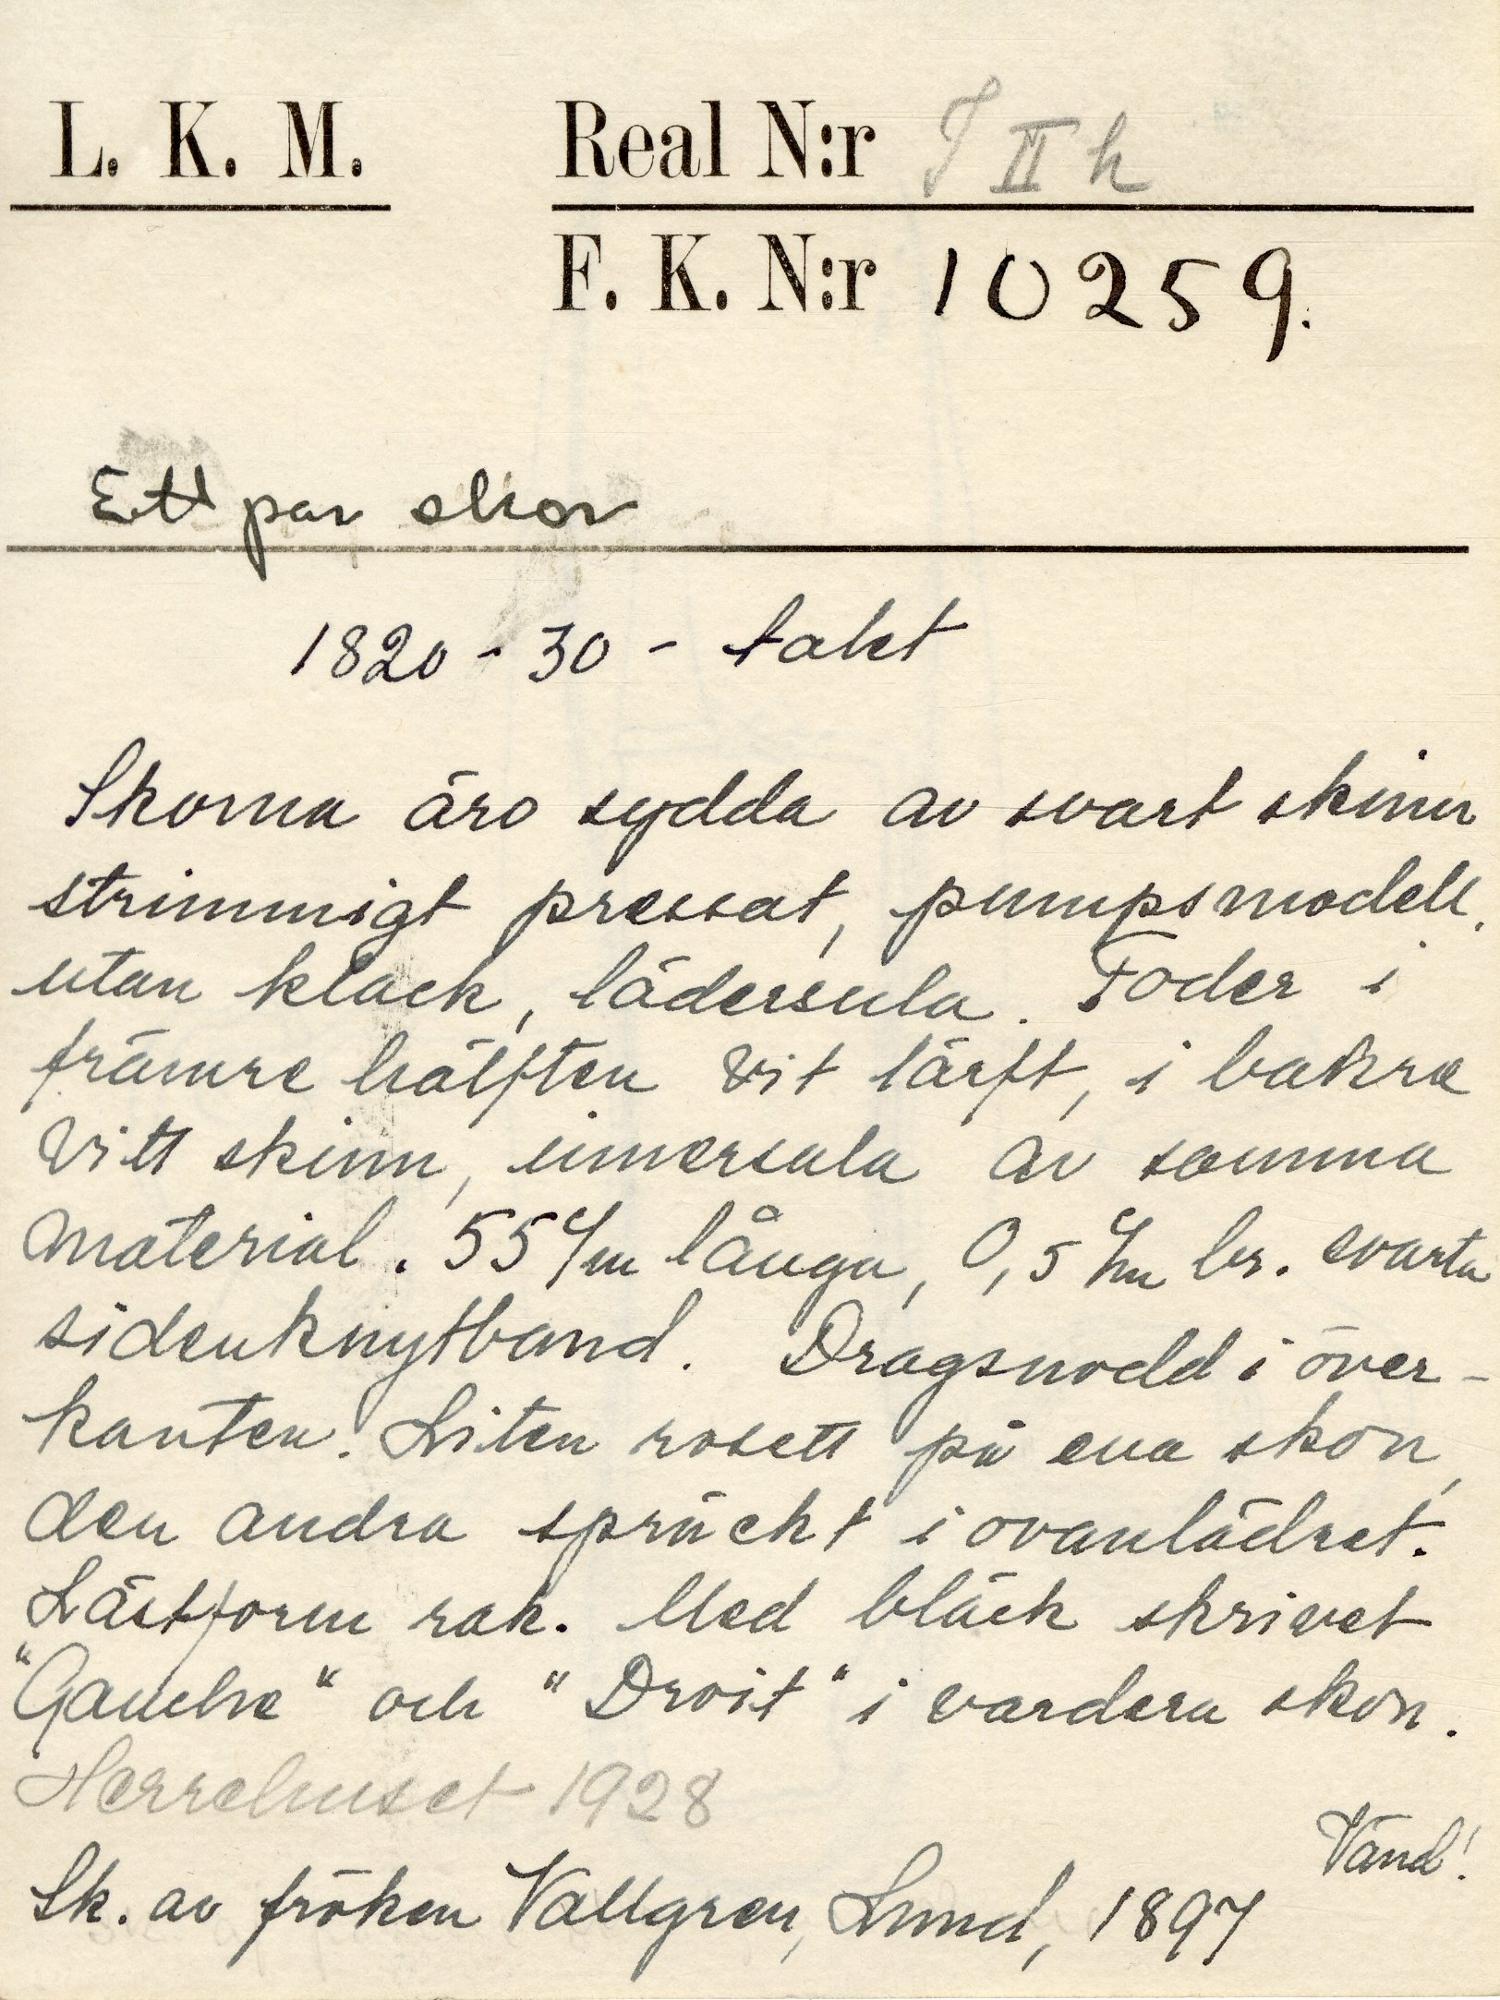 L. K. M. Real N:r T II h
F. K. N:r 10259.
Ett par skor
1820 - 30 - talet
Skorna äro sydda av svart skinn
strimmigt pressat, pumpsmodell,
utan klack, lädersula. Foder i
främre hälften vit lärft, i bakre
vitt skinn, innersula av samma
material. 55 c/m långa, 0,5 c/m br. svarta
sidenknytband. Dragsnodd i över-
kanten. Liten rosett på ena skon,
den andra spräckt i ovanlädret.
Lästform rak. Med bläck skrivet
"Gauche" och "Droit" i vardera skon.
Herrehuset 1928
Vänd!
Sk. av fröken Vallgren, Lund, 1897